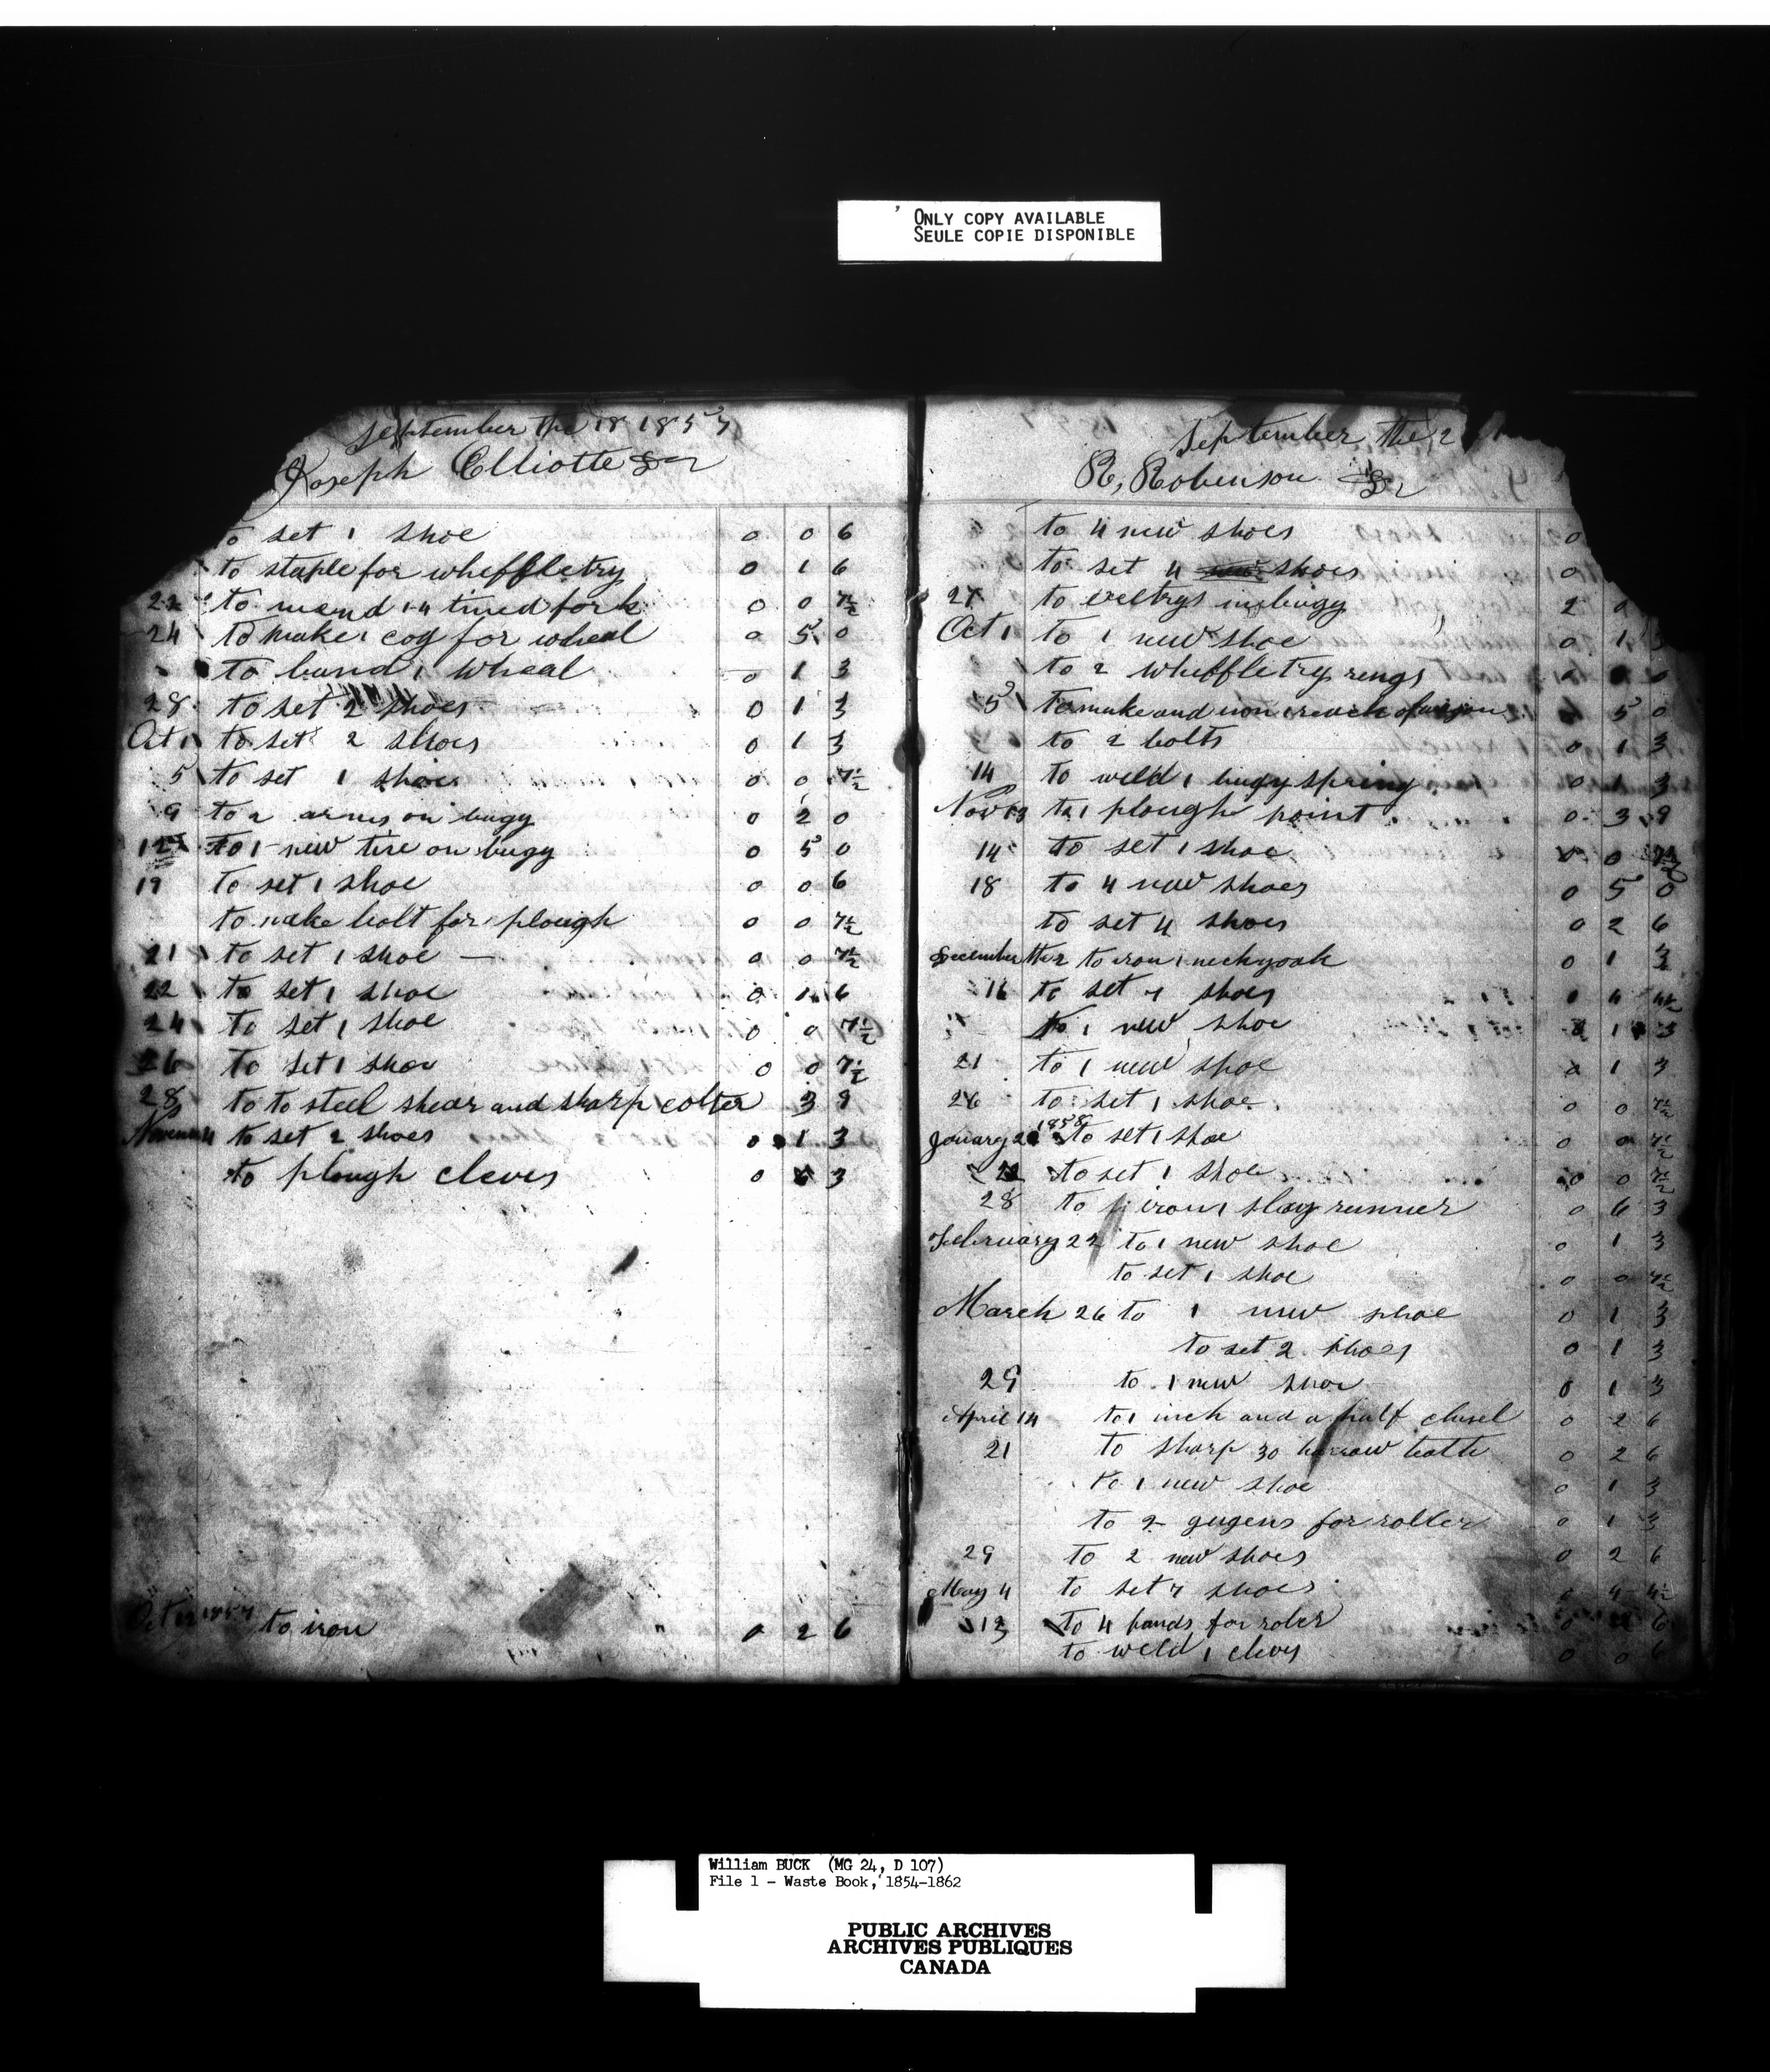 ONLY COPY AVAILABLE
SEULE COPIE DISPONIBLE
September the 18 1857
Joseph Elliotte Dr
to set 1 shoe 0 0 6
to staple for wheffletry 0 1 6
22 to mend 1 4 tined fork 0 0 7½
24 to make 1 cog for wheal 0 5 0
to band 1 wheal 0 1 3
28 to set 2 shoes 0 1 3
Oct 1 to set 2 shoes 0 1 3
5 to set 1 shoe 0 0 7½
9 to 2 arms on bugy 0 2 0
12 to 1 new tire on bugy 0 5 0
19 to set 1 shoe 0 0 6
to make bolt for plough 0 0 7½
21 to set 1 shoe 0 0 7½
22 to set 1 shoe 0 1 6
24 to set 1 shoe 0 0 7½
26 to set 1 shoe 0 0 7½
28 to to steel shear and sharp colter 3 9
Novem 4 to set 2 shoes 0 1 3
to plough cleves 0 3
Oct 12 1857 to iron 0 2 6
September the 2
R, Robinson Dr
to 4 new shoes 0
to set 4 shoes 0
27 to in bugy 2 0
Oct 1 to 1 new shoe 0 1 3
to 2 wheffletry rings
5 to make and iron 1 reach of 5 0
to 2 bolts 0 1 3
14 to weld 1 bugy spring 0 1 3
Nov 13 to 1 plough point 0 3 9
14 to set 1 shoe 0 0 7½
18 to 4 new shoes 0 5 0
to set 4 shoes 0 2 6
December the 2 to iron 1 neckyoak 0 1 3
16 to set 7 shoes 0 4 4½
to 1 new shoe 1 3
21 to 1 new shoe 0 1 3
26 to set 1 shoe 0 0 7½
January 1858 to set 1 shoe 0 0 7½
to set 1 shoe 0 0 7½
28 to iron 1 slay runner 0 6 3
February 22 to 1 new shoe 0 1 3
to set 1 shoe 0 0 7½
March 26 to 1 new shoe 0 1 3
to set 2 shoes 0 1 3
29 to 1 new shoe 0 1 3
April 14 to 1 inch and a half chisel 0 2 6
21 to sharp 30 harrow teath 0 2 6
to 1 new shoe 0 1 3
to 2 gugens for roller 0 1 3
29 to 2 new shoes 0 2 6
May 4 to set 7 shoes 0 4 4½
13 to 4 bands for roler 6
to weld 1 clevy 0 0 6
William BUCK (MG 24, D 107)
File 1 - Waste Book, 1854-1862
PUBLIC ARCHIVES
ARCHIVES PUBLIQUES
CANADA